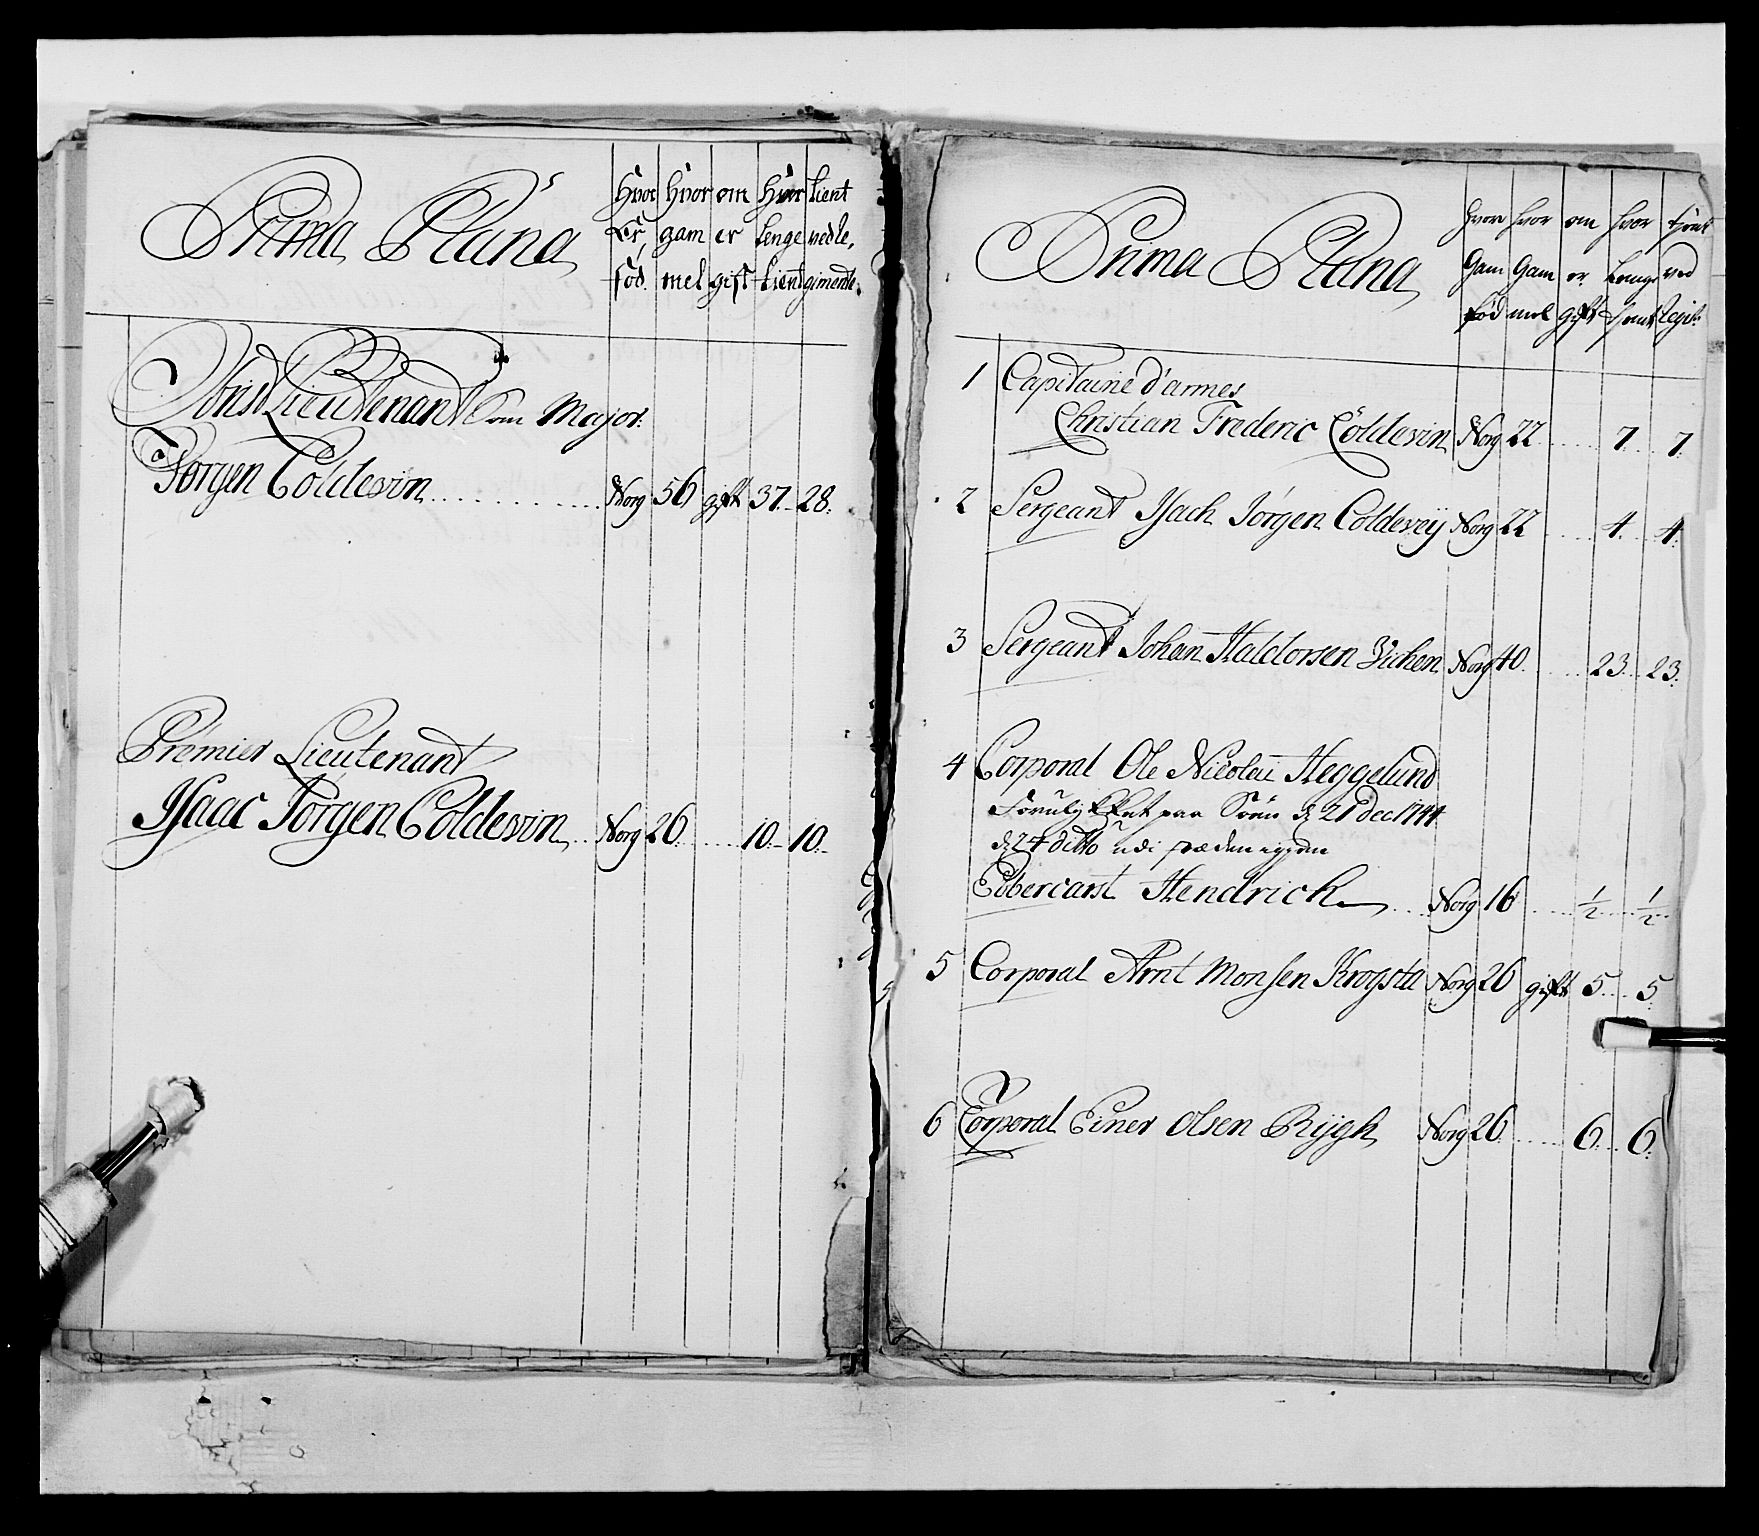 Prima Plana
Hvor Hvor om Hvor tient
Er gam er lenge ved Re,
fød. mel gift tient gimente.
Obrist Lieutenant Som Major.
Jørgen Coldevin Norg 56 gift 37. 28.
Premier Lieutenant
Isaac Jørgen Coldevin Norg 26. 10. 10.
Prima Plana
hvor hvor om hvor tient
Gam Gam er Lenge ved
fød mel gift tient Regi:
1 Capitaine d'armes
Christian Frederic Coldevin Norg 22 7. 7.
2 Sergeant Isach Jørgen Coldevej Norg 22 4. 4.
3 Sergeant Johan Haldorsen Norg 40. 23. 23.
4 Corporal Ole Nicolai Heggelund
Forulykket paa Søen d 21 Dec 1744
d 24 ditto udi igien
Hendrich Norg 16 1/2 1/2
5 Corporal Arnt Monsen Krogsta Norg 26 gift 5. 5.
6 Corporal Einer Olsen Rijgh Norg 26 6. 6.